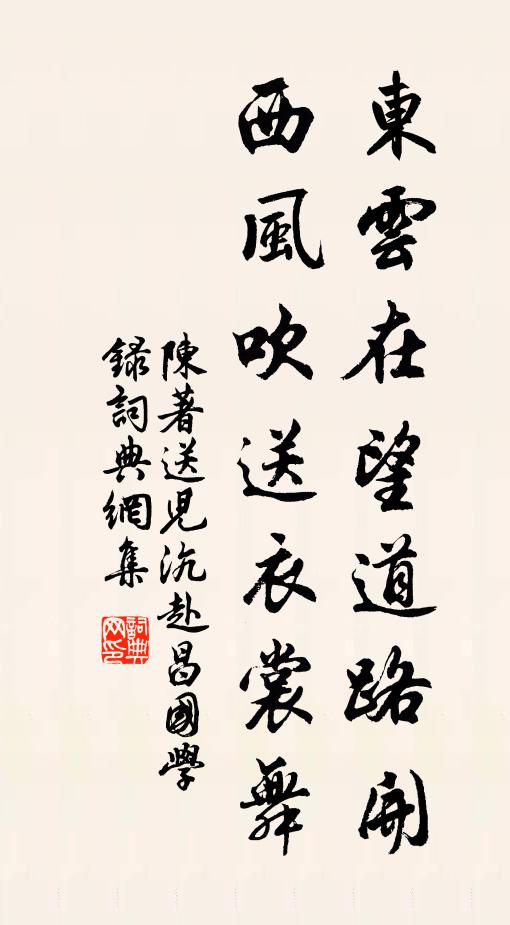 東雲在望道路開
西風吹送衣裳舞
陳著送児沆赴昌國學
錄詞典網集
詞典网印